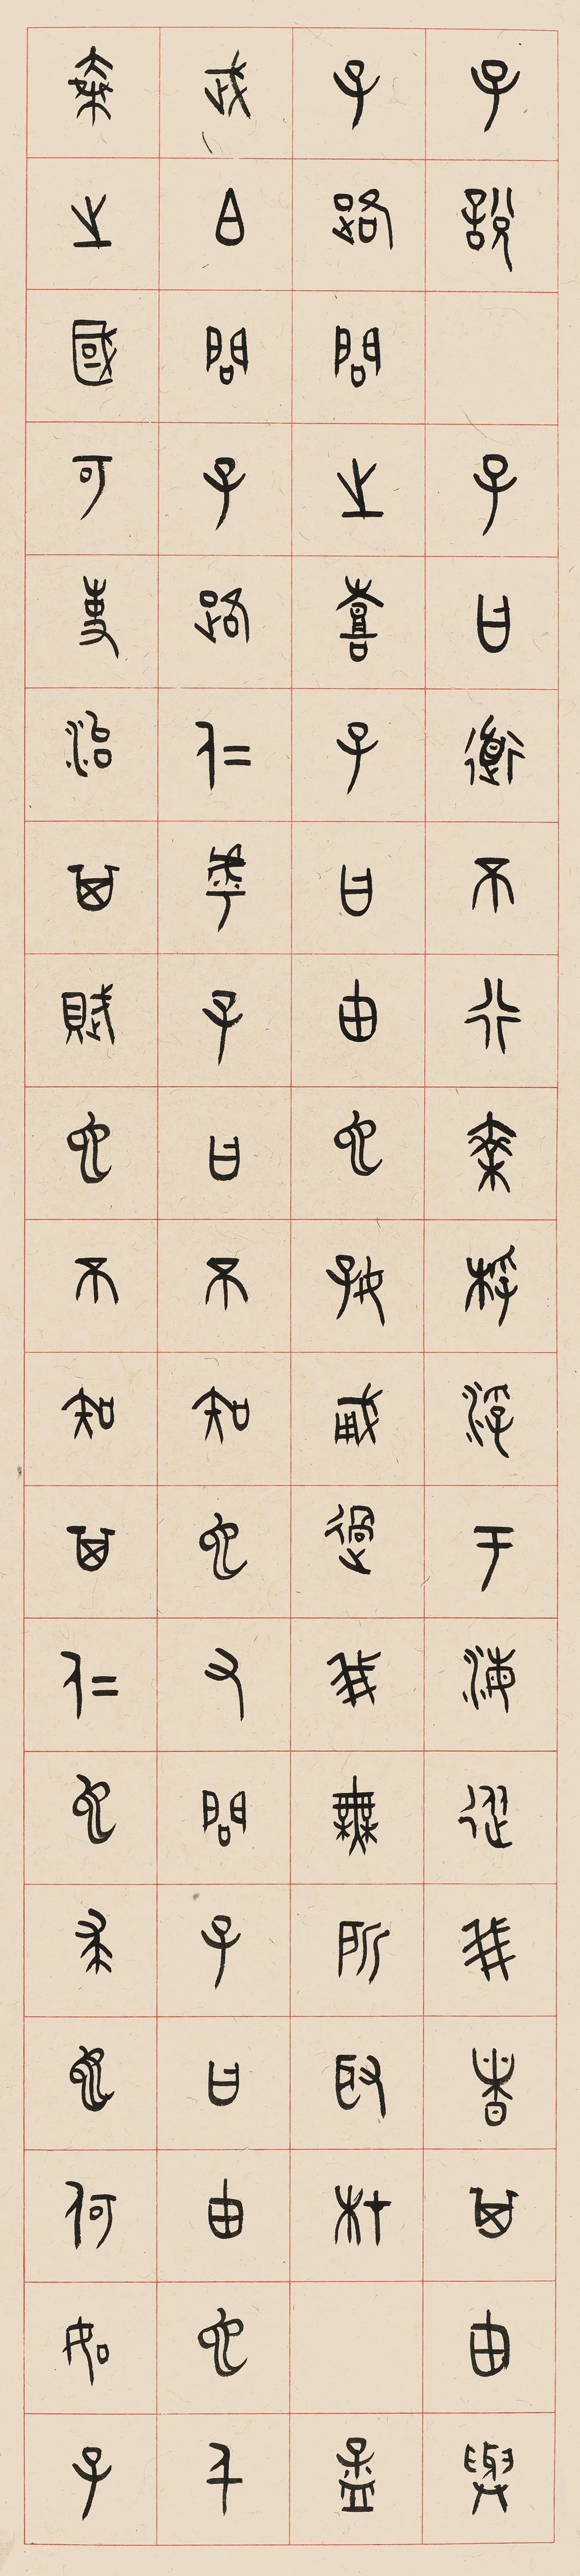 子說　子曰道不行乘桴浮于海從我者其由與
子路問之喜子曰由也好勇過我無所取材　孟
武白問子路仁乎子曰不知也又問子曰由也千
乘之國可使治其賦也不知其仁也求也何如子